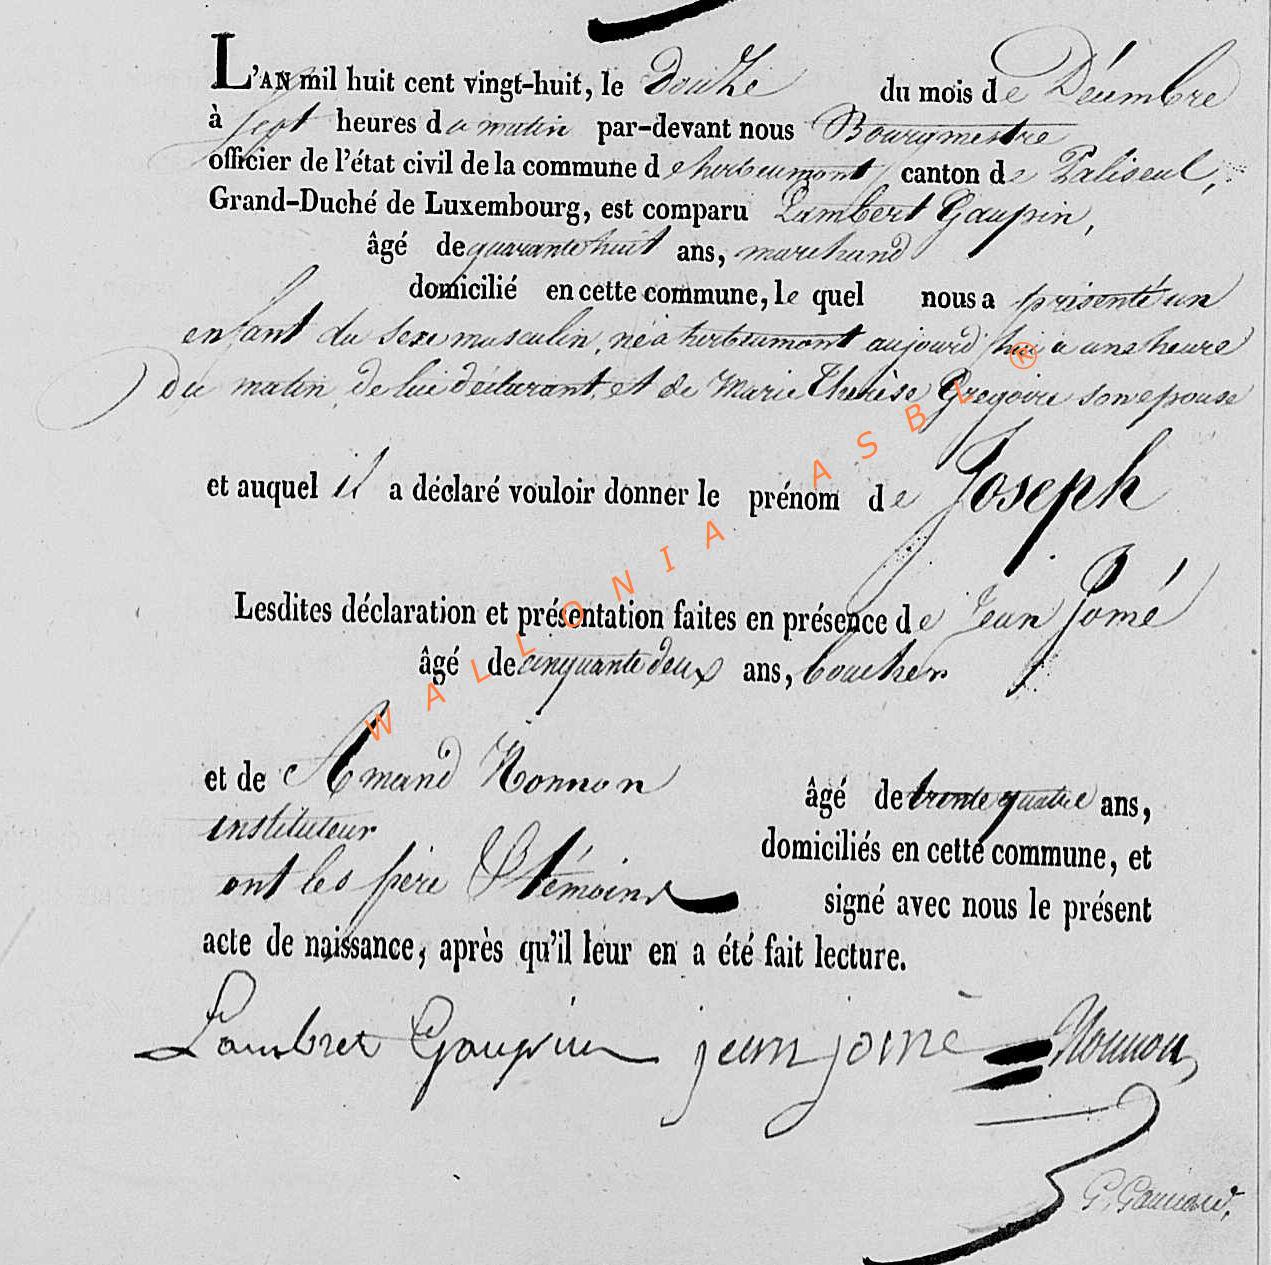 L'AN mil huit cent vingt-huit, le douze du mois de Décembre
à sept heures du matin par-devant nous Bourgmestre
officier de l'état civil de la commune d'herbeumont canton de Paliseul,
Grand-Duché de Luxembourg, est comparu Lambert Gaupin,
âgé de quarante huit ans, marchand
domicilié en cette commune, le quel nous a présenté un
enfant du sexe masculin, né à herbeumont aujourd'hui à une heure
Du matin, de lui déclarant, et de Marie Therèse Gregoire son epouse
et auquel il a déclaré vouloir donner le prénom de Joseph
Lesdites déclaration et présentation faites en présence de Jean Jomé
âgé de cinquante deux ans, boucher
et de Amand Nonnon âgé de trente quatre ans,
instituteur
domiciliés en cette commune, et
ont les père & témoins signé avec nous le présent
acte de naissance, après qu'il leur en a été fait lecture.
Lambret Gaupin jean jomé Nonnon
WALLONIA ASBL ®